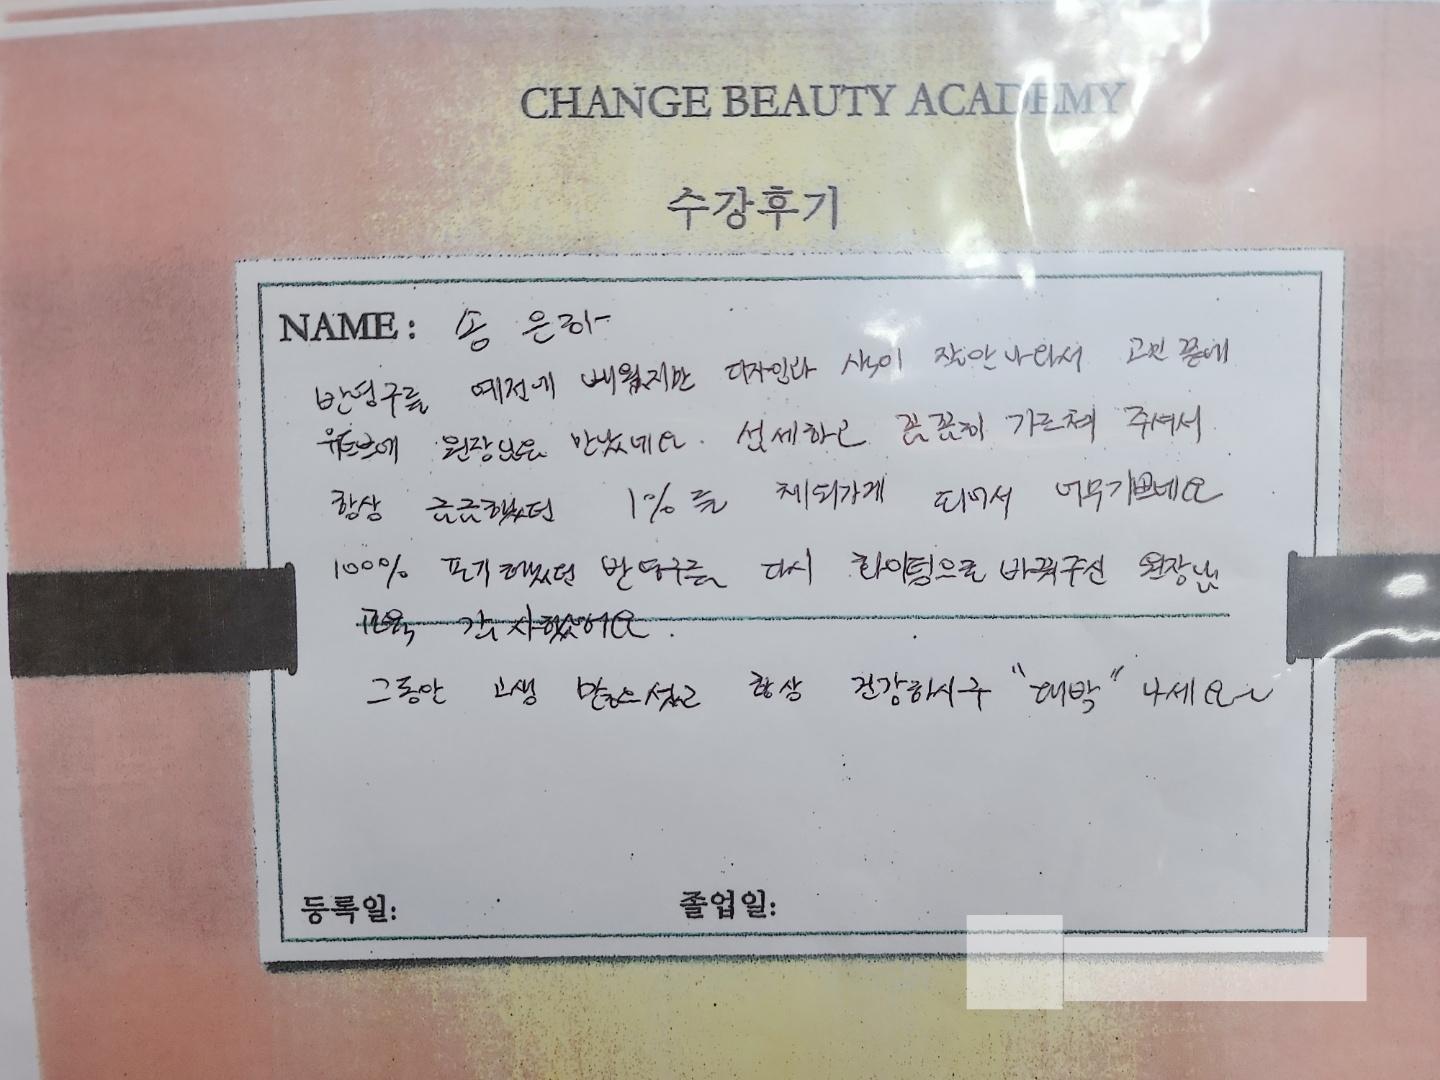 CHANGE BEAUTY ACADEMY
수강후기
NAME: 송은하
반영구를 예전에 배웠지만 디자인과 색이 잘안나와서 고민 끝에
유튜브에 원장님을 만났네요. 섬세하고 꼼꼼히 가르쳐 주셔서
항상 궁금했던 1%를 체워가게 되어서 너무기쁘네요
100% 포기했었던 반영구를 다시 화이팅으로 바꿔주신 원장님
교육 감사했어요.
그동안 고생 많으셨고 항상 건강하시구 "대박" 나세요~
등록일: 졸업일: